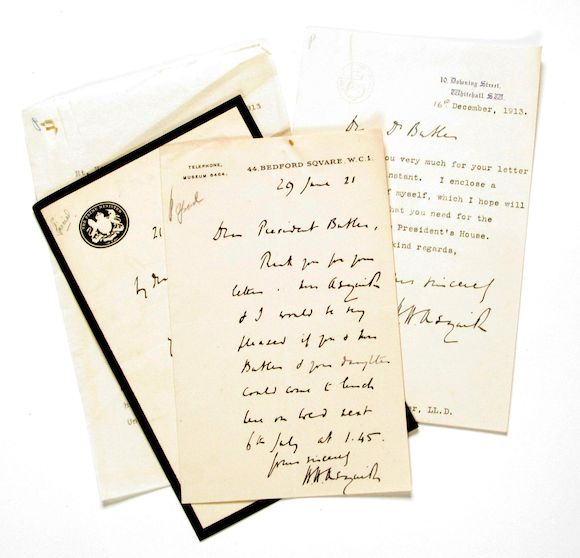 TELEPHONE,
MUSEUM 8454.
44, BEDFORD SQVARE, W.C.1.
29 June 21
Dear President Butler,
Thank you for your
letter. Mrs Asquith
& I would be very
pleased if you & Mrs
Butler & your daughter
could come to lunch
here on Wed next
6th July at 1.45.
Yours sincerely
HHAsquith
10, Downing Street,
Whitehall S.W.
16th December, 1913.
Dear Dr Butler
you very much for your letter
nstant. I enclose a
f myself, which I hope will
hat you need for the
President's House.
kind regards,
sincerely
HHAsquith
er, LL.D.
913
21
my dear